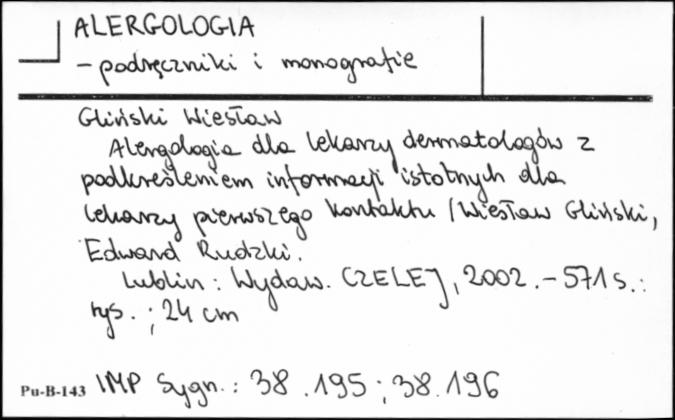 ALERGOLOGIA
- podręczniki i monografie
Gliński Wiesław
Alergologia dla lekarzy dermatologów z
podkreśleniem informacji istotnych dla
lekarzy pierwszego kontaktu / Wiesław Gliński,
Edward Rudzki.
Lublin : Wydaw. CZELEJ, 2002. - 571 s. :
rys. ; 24 cm
Pu-B-143 IMP Sygn. : 38.195 ; 38.196